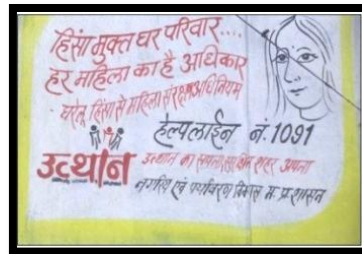 हिंसा मुक्त घर परिवार....
हर महिला का है अधिकार
घरेलू हिंसा से महिला संरक्षण अधिनियम
हेल्प लाईन नं. 1091
उत्थान
उत्थान का सपना सुरक्षित शहर अपना
नगरीय एवं पर्यावरण विकास म. प्र. शासन